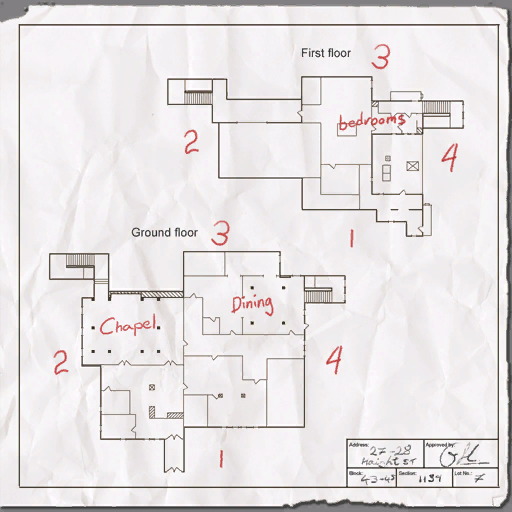 First floor
3
bedrooms
2
4
1
Ground floor
3
Dining
Chapel
2
4
1
Address:
27-28
Haight ST
Approved by:
Block:
43-45
Section:
1134
Lot No.:
7